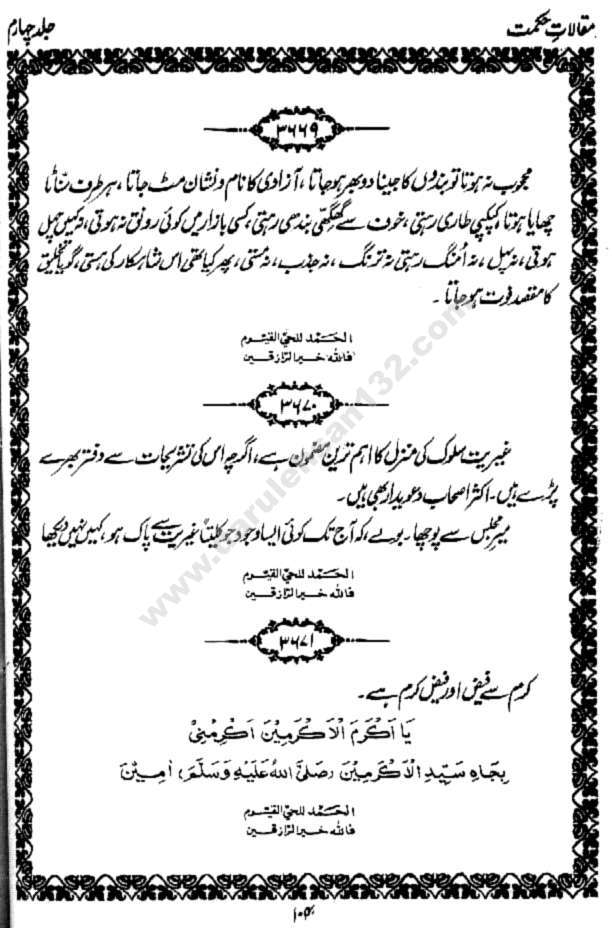 مقالاتِ حکمت
جلد چہارم
۳۶۶۹
محجوب نہ ہوتا تو بندوں کا جینا دوبھر ہو جاتا، آزادی کا نام و نشان مٹ جاتا، ہر طرف سنّاٹا
چھایا ہوتا، کپکپی طاری رہتی، خوف سے گھگھی بندھی رہتی، کسی بازار میں کوئی رونق نہ ہوتی، نہ کہیں چہل
ہوتی، نہ پہل، نہ اُمنگ رہتی نہ ترنگ، نہ جذب، نہ مستی، پھر کیا تھی اس شاہکار کی ہستی، گویا تخلیق
کا مقصد فوت ہو جاتا۔
الحَمد للحيّ القيّوم
فالله خير الرازقين
۳۶۷۰
غیریت سلوک کی منزل کا اہم ترین مضمون ہے، اگرچہ اس کی تشریحات سے دفتر بھرے
پڑے ہیں۔ اکثر اصحاب دعویدار بھی ہیں۔
میرِ مجلس سے پوچھا۔ بولے، کہ آج تک کوئی ایسا وجود جو کلیتاً غیریت سے پاک ہو، کہیں نہیں دیکھا
الحَمد للحيّ القيّوم
فالله خير الرازقين
۳۶۷۱
کرم سے فیض اور فیض کرم ہے۔
يَا اَكْرَمَ الْاَكْرَمِيْنَ اَكْرِمْنِيْ
بِجَاهِ سَيِّدِ الْاَكْرَمِيْنَ صَلَّى اللهُ عَلَيْهِ وَسَلَّمَ، اٰمِيْنَ
الحَمد للحيّ القيّوم
فالله خير الرازقين
www.darulehsan132.com